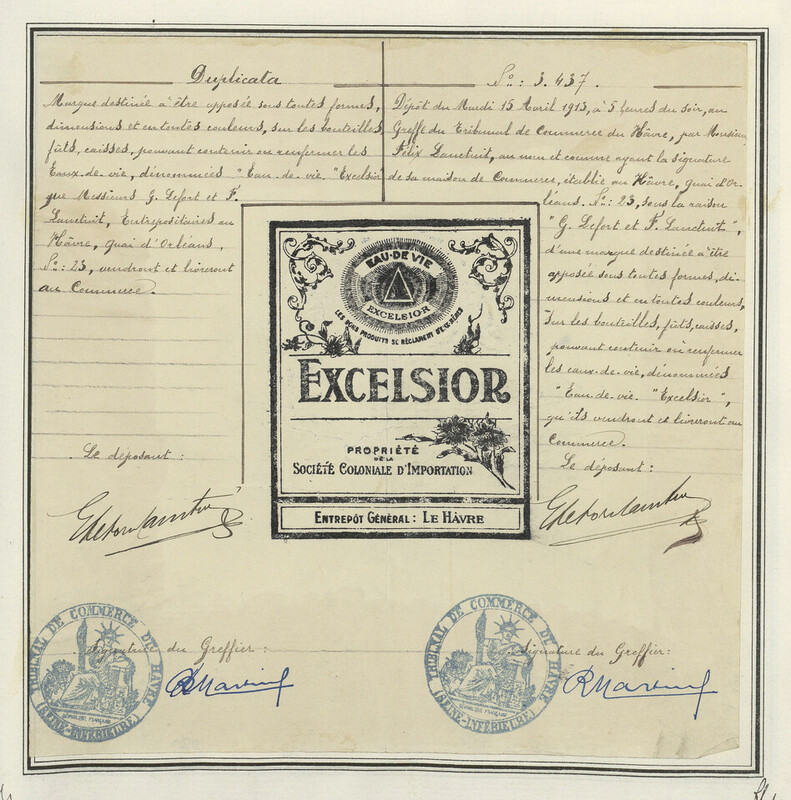 Duplicata
Marque destinée à être apposée sous toutes formes,
dimensions et en toutes couleurs, sur les bouteilles,
fûts, caisses, pouvant contenir ou renfermer les
Eaux-de-vie, dénommées "Eau-de-vie "Excelsior
que Messieurs G. Lefort et F.
Lanctuit, Entrepositaires au
Hâvre, Quai d'Orléans,
No: 23, vendront et livreront
au Commerce.
Le déposant:
No: 3.437.
Dépôt du Mardi 15 Avril 1913, à 5 heures du soir, au
Greffe du Tribunal de Commerce du Hâvre, par Monsieur
Félix Lanctuit, au nom et comme ayant la signature
de sa maison de Commerce, établie au Hâvre, quai d'Or-
léans. No: 23, sous la raison
"G. Lefort et F. Lanctuit",
d'une marque destinée à être
apposée sous toutes formes, di-
mensions et en toutes couleurs,
sur les bouteilles, fûts, caisses,
pouvant contenir ou renfermer
les eaux-de-vie, dénommées
"Eau-de-vie. "Excelsior",
qu'ils vendront et livreront au
Commerce.
Le déposant:
EAU-DE-VIE
EXCELSIOR
LES BONS PRODUITS SE RÉCLAMENT D'EUX-MÊMES
EXCELSIOR
PROPRIÉTÉ
DE LA
SOCIÉTÉ COLONIALE D'IMPORTATION
ENTREPÔT GÉNÉRAL: LE HÂVRE
Signature du Greffier:
TRIBUNAL DE COMMERCE DU HAVRE
(SEINE-INFÉRIEURE)
Signature du Greffier:
TRIBUNAL DE COMMERCE DU HAVRE
(SEINE-INFÉRIEURE)